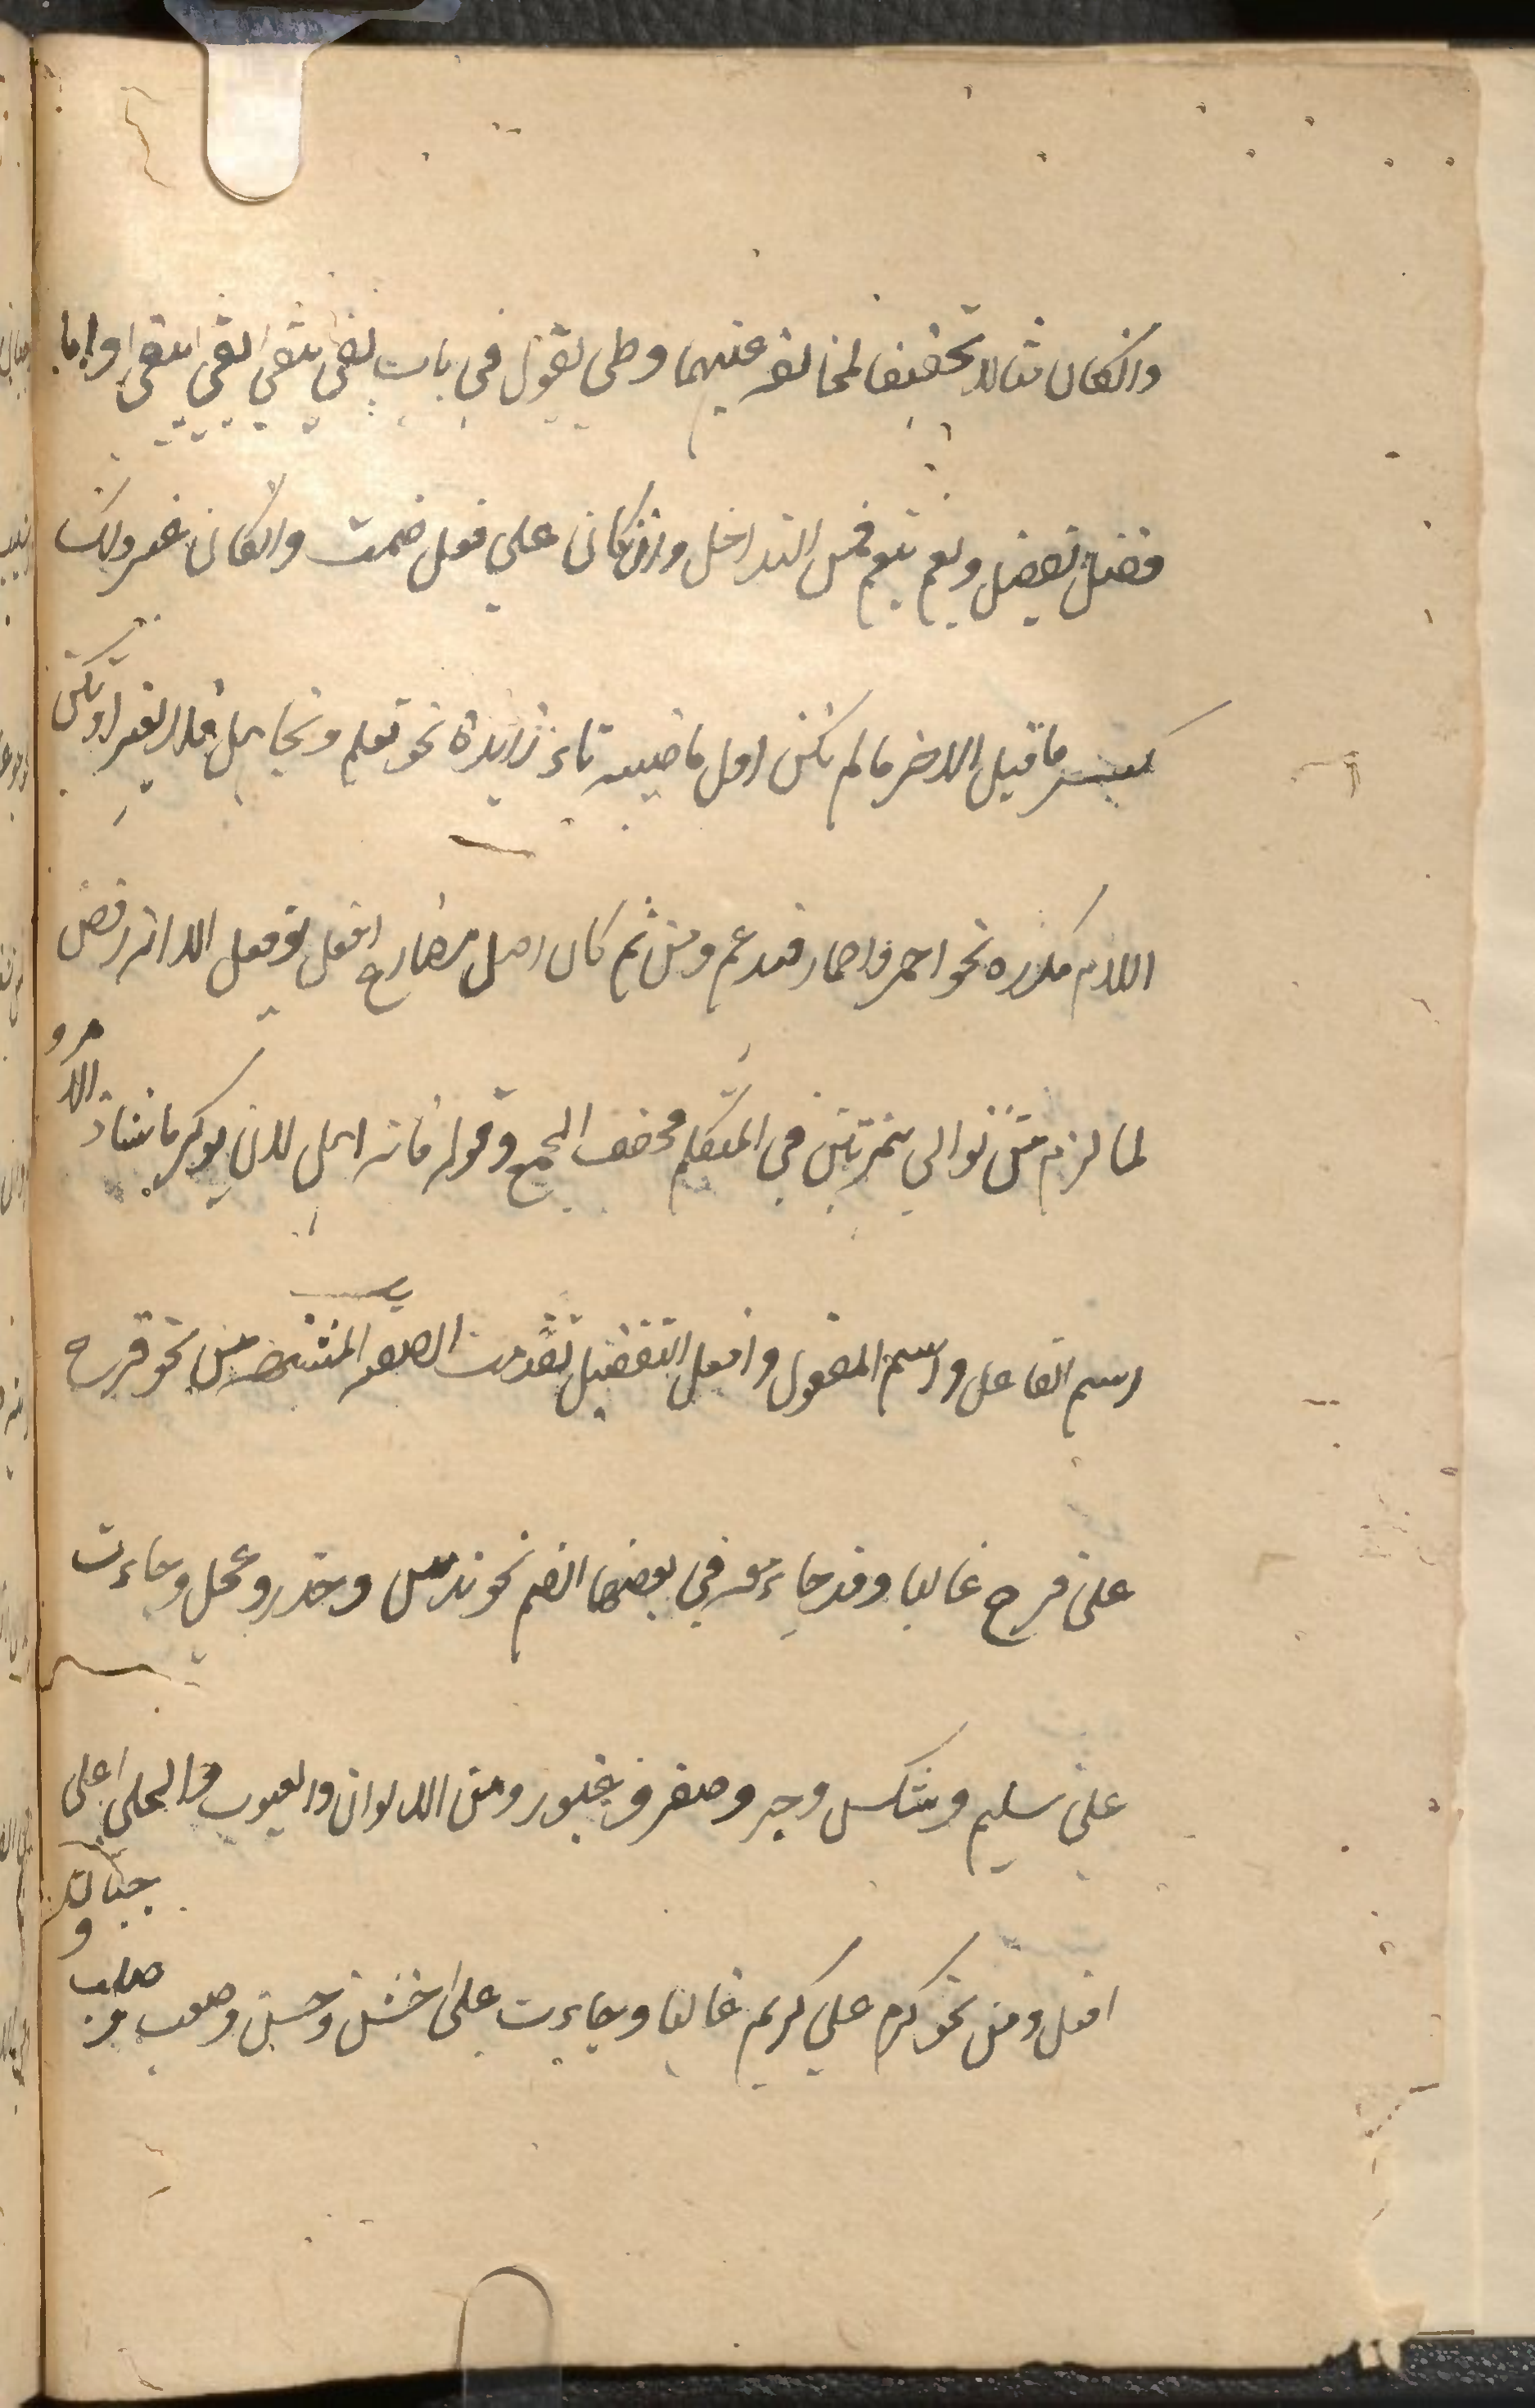 وان كان مثالا تخفيفا لمخالفه عنهما وطی یقول فی باب بقی یبقی بقی یبقی واما
فضل یفضل ونعم ینعم فمن التداخل وان كان علی فعل ضمت وان كان غیر ذلك
كسر ما قبل الاخر ما لم یكن اول ماضیه تاء زایدة نحو تعلم وتجاهل فلا یغیر او یكن
اللام مكرره نحو احمر واحمار فیدغم ومن ثم كان اصل مضارع افعل یؤفعل الا انه رفض
لما لزم من توالی همزتین فی المتكلم فخفف الجمیع وقوله فانه اهل لان یؤكرما شاذ الامر و
اسم الفاعل واسم المفعول وافعل التفضیل تقدمت الصفه المشبهه من نحو فرح
علی فرح غالبا وقد جاء معه فی بعضها الضم نحو ندس وحذر وعجل وجاءت
علی سلیم وشكس وحر وصفر وغیور ومن الالوان والعیوب والحلی علی
افعل ومن نحو كرم علی كریم غالبا وجاءت علی خشن وحسن وصعب وصلب وجبان